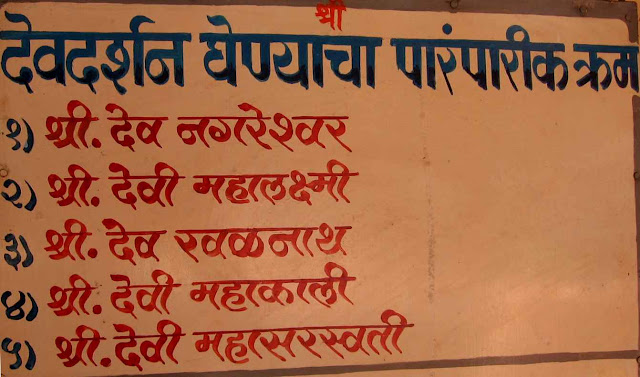 श्री
देवदर्शन घेण्याचा पारंपारीक क्रम
१) श्री. देव नगरेश्वर
२) श्री. देवी महालक्ष्मी
३) श्री. देव रवळनाथ
४) श्री. देवी महाकाली
५) श्री. देवी महासरस्वती